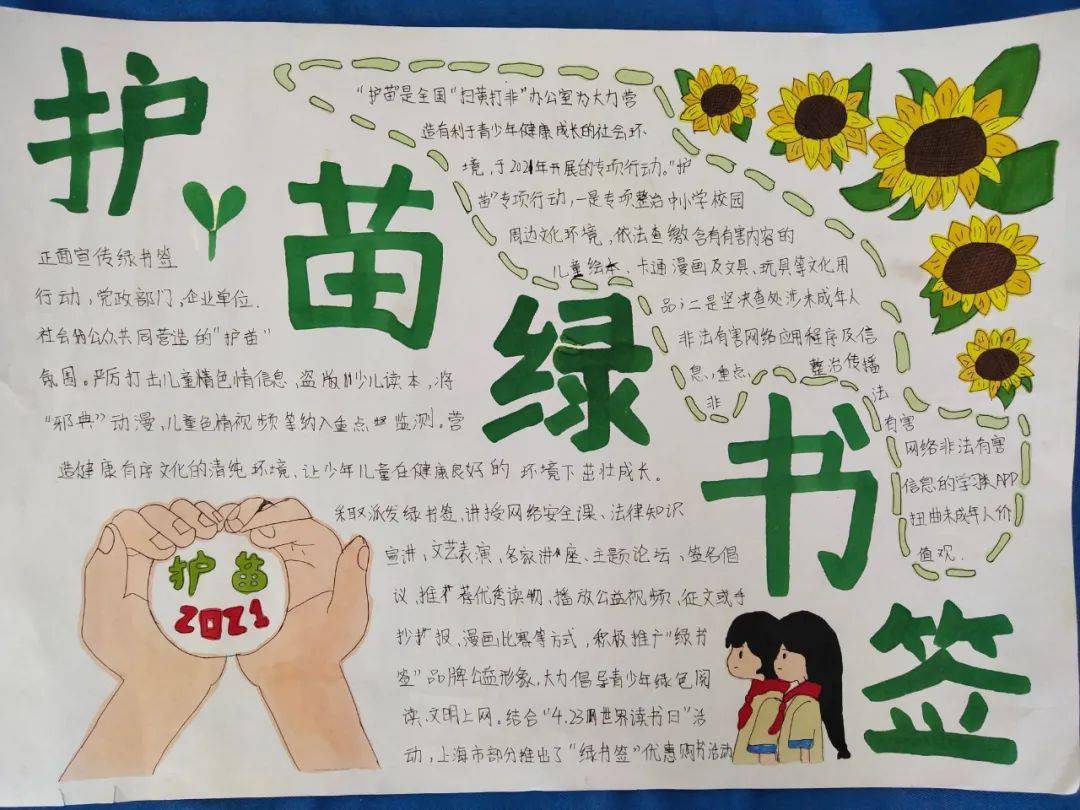 护苗绿书签
“护苗”是全国“扫黄打非”办公室为大力营
造有利于青少年健康成长的社会环
境，于2021年开展的专项行动。“护
苗”专项行动，一是专项整治中小学校园
周边文化环境，依法查缴含有有害内容的
儿童绘本、卡通漫画及文具、玩具等文化用
品；二是坚决查处涉未成年人
非法有害网络应用程序及信
息，重点，整治传播
非法
有害
网络非法有害
信息的学习类APP
扭曲未成年人价
值观.
正面宣传绿书签
行动，党政部门，企业单位.
社会的公众共同营造的“护苗”
氛围。严厉打击儿童情色情信息，盗版少儿读本，将
“邪典”动漫，儿童色情视频等纳入重点监测。营
造健康有序文化的清纯环境，让少年儿童在健康良好的环境下茁壮成长。
采取派发绿书签，讲授网络安全课、法律知识
宣讲、文艺表演、名家讲座、主题论坛、签名倡
议，推荐优秀读物，播放公益视频，征文或手
抄报、漫画比赛等方式，积极推广“绿书
签”品牌公益形象，大力倡导青少年绿色阅
读、文明上网。结合“4.23世界读书日”活
动，上海市部分推出了“绿书签”优惠购书活动
护苗
2021